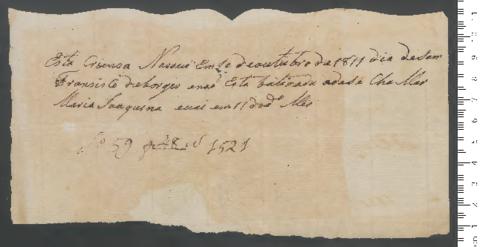 Esta Criensa Naseu Em 10 de outubro de 1811 dia de Sam
Fransisco de borges e naõ Esta batizada adase Cha Mar
Maria Joaquina e vai em 11 do do Mes
No 59 1521